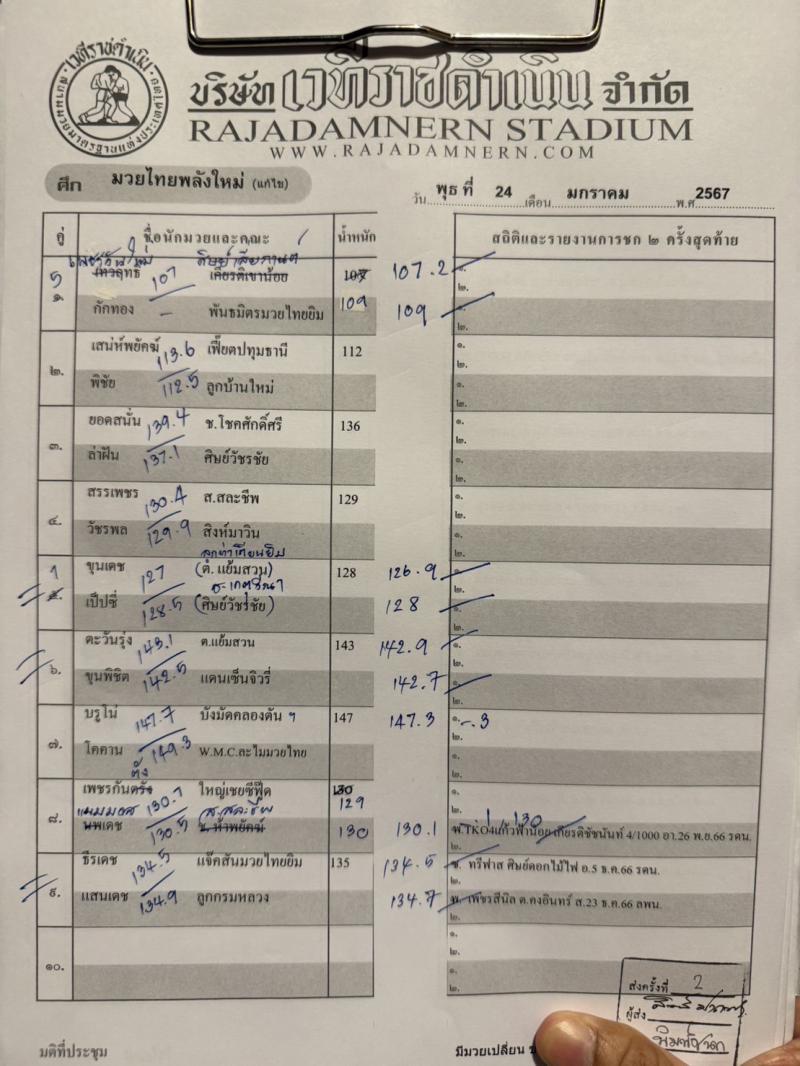 เวทีราชดำเนิน
สนามมวยมาตรฐานแห่งประเทศไทย
บริษัท เวทีราชดำเนิน จำกัด
RAJADAMNERN STADIUM
WWW.RAJADAMNERN.COM
ศึก มวยไทยพลังใหม่ (แก้ไข)
วัน พุธ ที่ 24 เดือน มกราคม พ.ศ. 2567
คู่ ชื่อนักมวยและคณะ น้ำหนัก สถิติและรายงานการชก ๒ ครั้งสุดท้าย
5 107 เกียรติเขาน้อย 107 107.2 ๑.
๒.
๑.
กักทอง - พันธมิตรมวยไทยยิม 109 109 ๑.
๒.
เสน่ห์พยัคฆ์ 113.6 เฟี๊ยตปทุมธานี 112 ๑.
๒.
๒.
พิชัย 112.5 ลูกบ้านใหม่ ๑.
๒.
ยอดสนั่น 139.4 ช.โชคศักดิ์ศรี 136 ๑.
๒.
๓.
ล่าฝัน 137.1 ศิษย์วัชรชัย ๑.
๒.
สรรเพชร 130.4 ส.สละชีพ 129 ๑.
๒.
๔.
วัชรพล 129.9 สิงห์มาวิน ๑.
๒.
1 ขุนเดช 127 (ต. แย้มสวน) 128 126.9 ๑.
๒.
๕.
เป๊ปซี่ 128.5 (ศิษย์วัชรชัย) 128 ๑.
๒.
ตะวันรุ่ง 143.1 ต.แย้มสวน 143 142.9 ๑.
๒.
๖.
ขุนพิชิต 142.5 แดนเซ็นจิวรี่ 142.7 ๑.
๒.
บรูโน่ 147.7 บังมัดคลองตัน ฯ 147 147.3 ๑. -.3
๒.
๗.
โคคาน 149.3 W.M.C.ละไมมวยไทย ๑.
๒.
ตั้ง
เพชรกันตรัง 130.7 ใหญ่เชยซีฟู๊ด 130 129 ๑.
๒.
แหมมอส ส.สละชีพ 1/130
๘.
นพเดช 130.5 ช.ห้าพยัคฆ์ 130 130.1 พ.TKO4แก้วฟ้าน้อย เกียรติชัชนันท์ 4/1000 อา.26 พ.ย.66 รดน.
๒.
ธีรเดช 134.5 แจ๊คสันมวยไทยยิม 135 134.5 ช. ทรีฟาส ศิษย์ดอกไม้ไฟ อ.5 ธ.ค.66 รดน.
๒.
๙.
แสนเดช 134.9 ลูกกรมหลวง 134.7 พ. เพชรสีนิล ต.คงอินทร์ ส.23 ธ.ค.66 ลพน.
๒.
๑.
๒.
๑๐.
๑.
๒.
ส่งครั้งที่ 2
ผู้ส่ง
มติที่ประชุม มีมวยเปลี่ยน